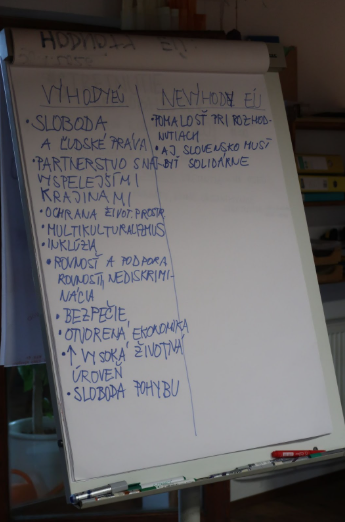 HODNOTY EÚ
VÝHODY EÚ
• SLOBODA
A ĽUDSKÉ PRÁVA
• PARTNERSTVO S NAJ-
VYSPELEJŠÍMI
KRAJINAMI
• OCHRANA ŽIVOT. PROSTR.
• MULTIKULTURALIZMUS
• INKLÚZIA
• ROVNOSŤ A PODPORA
ROVNOSTI, NEDISKRIMI-
NÁCIA
• BEZPEČIE
• OTVORENÁ EKONOMIKA
• ↑ VYSOKÁ ŽIVOTNÁ
ÚROVEŇ
• SLOBODA POHYBU
NEVÝHODY EÚ
• POMALOSŤ PRI ROZHOD-
NUTIACH
• AJ SLOVENSKO MUSÍ
BYŤ SOLIDÁRNE